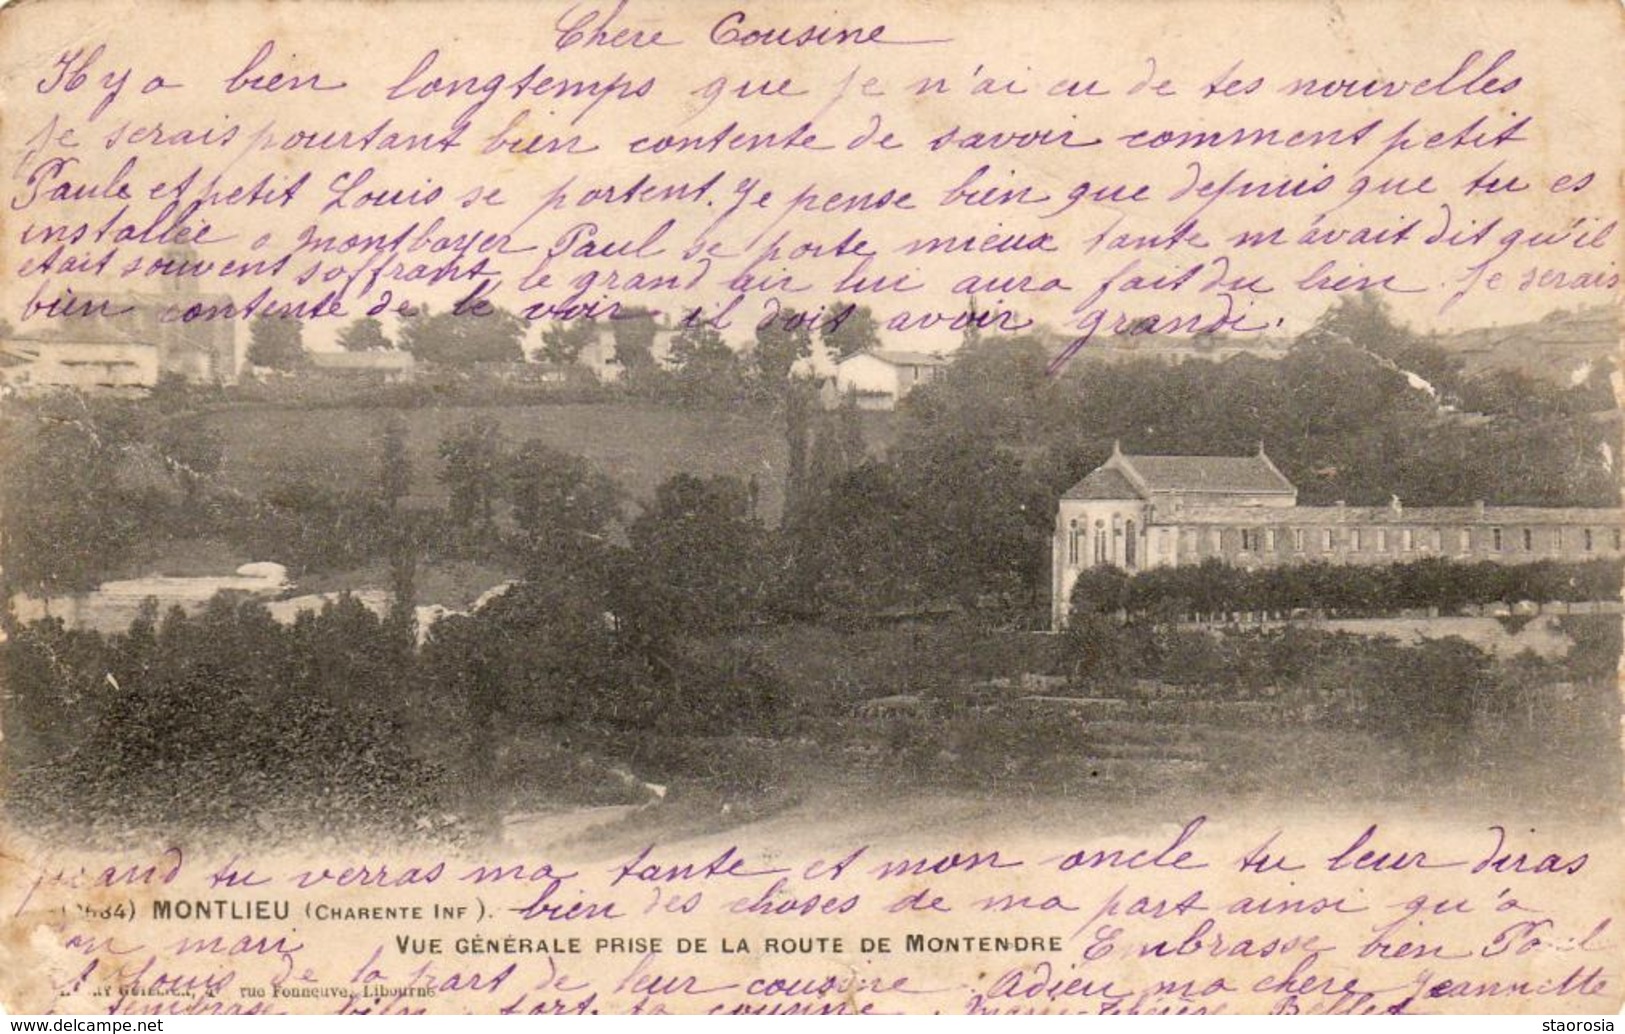 Chere Cousine
Il y a bien longtemps que je n'ai eu de tes nouvelles
je serais pourtant bien contente de savoir comment petit
Paule et petit Louis se portent. Je pense bien que depuis que tu es
installée a montboyer Paul se porte mieux tante m'avait dit qu'il
etait souvent soffrant, le grand air lui aura fait du bien. Je serais
bien contente de le voir il doit avoir grandi.
quand tu verras ma tante et mon oncle tu leur diras
MONTLIEU (CHARENTE INF). bien des choses de ma part ainsi qu'a
ton mari VUE GÉNÉRALE PRISE DE LA ROUTE DE MONTENDRE Embrasse bien Paul
et Louis de la part de leur cousine. Adieu ma chere Jeannette
rue Fonneuve, Libourne
t'embrase bien fort ta cousine. Marie-Thérèse Bellet
delcampe.net
staorosia